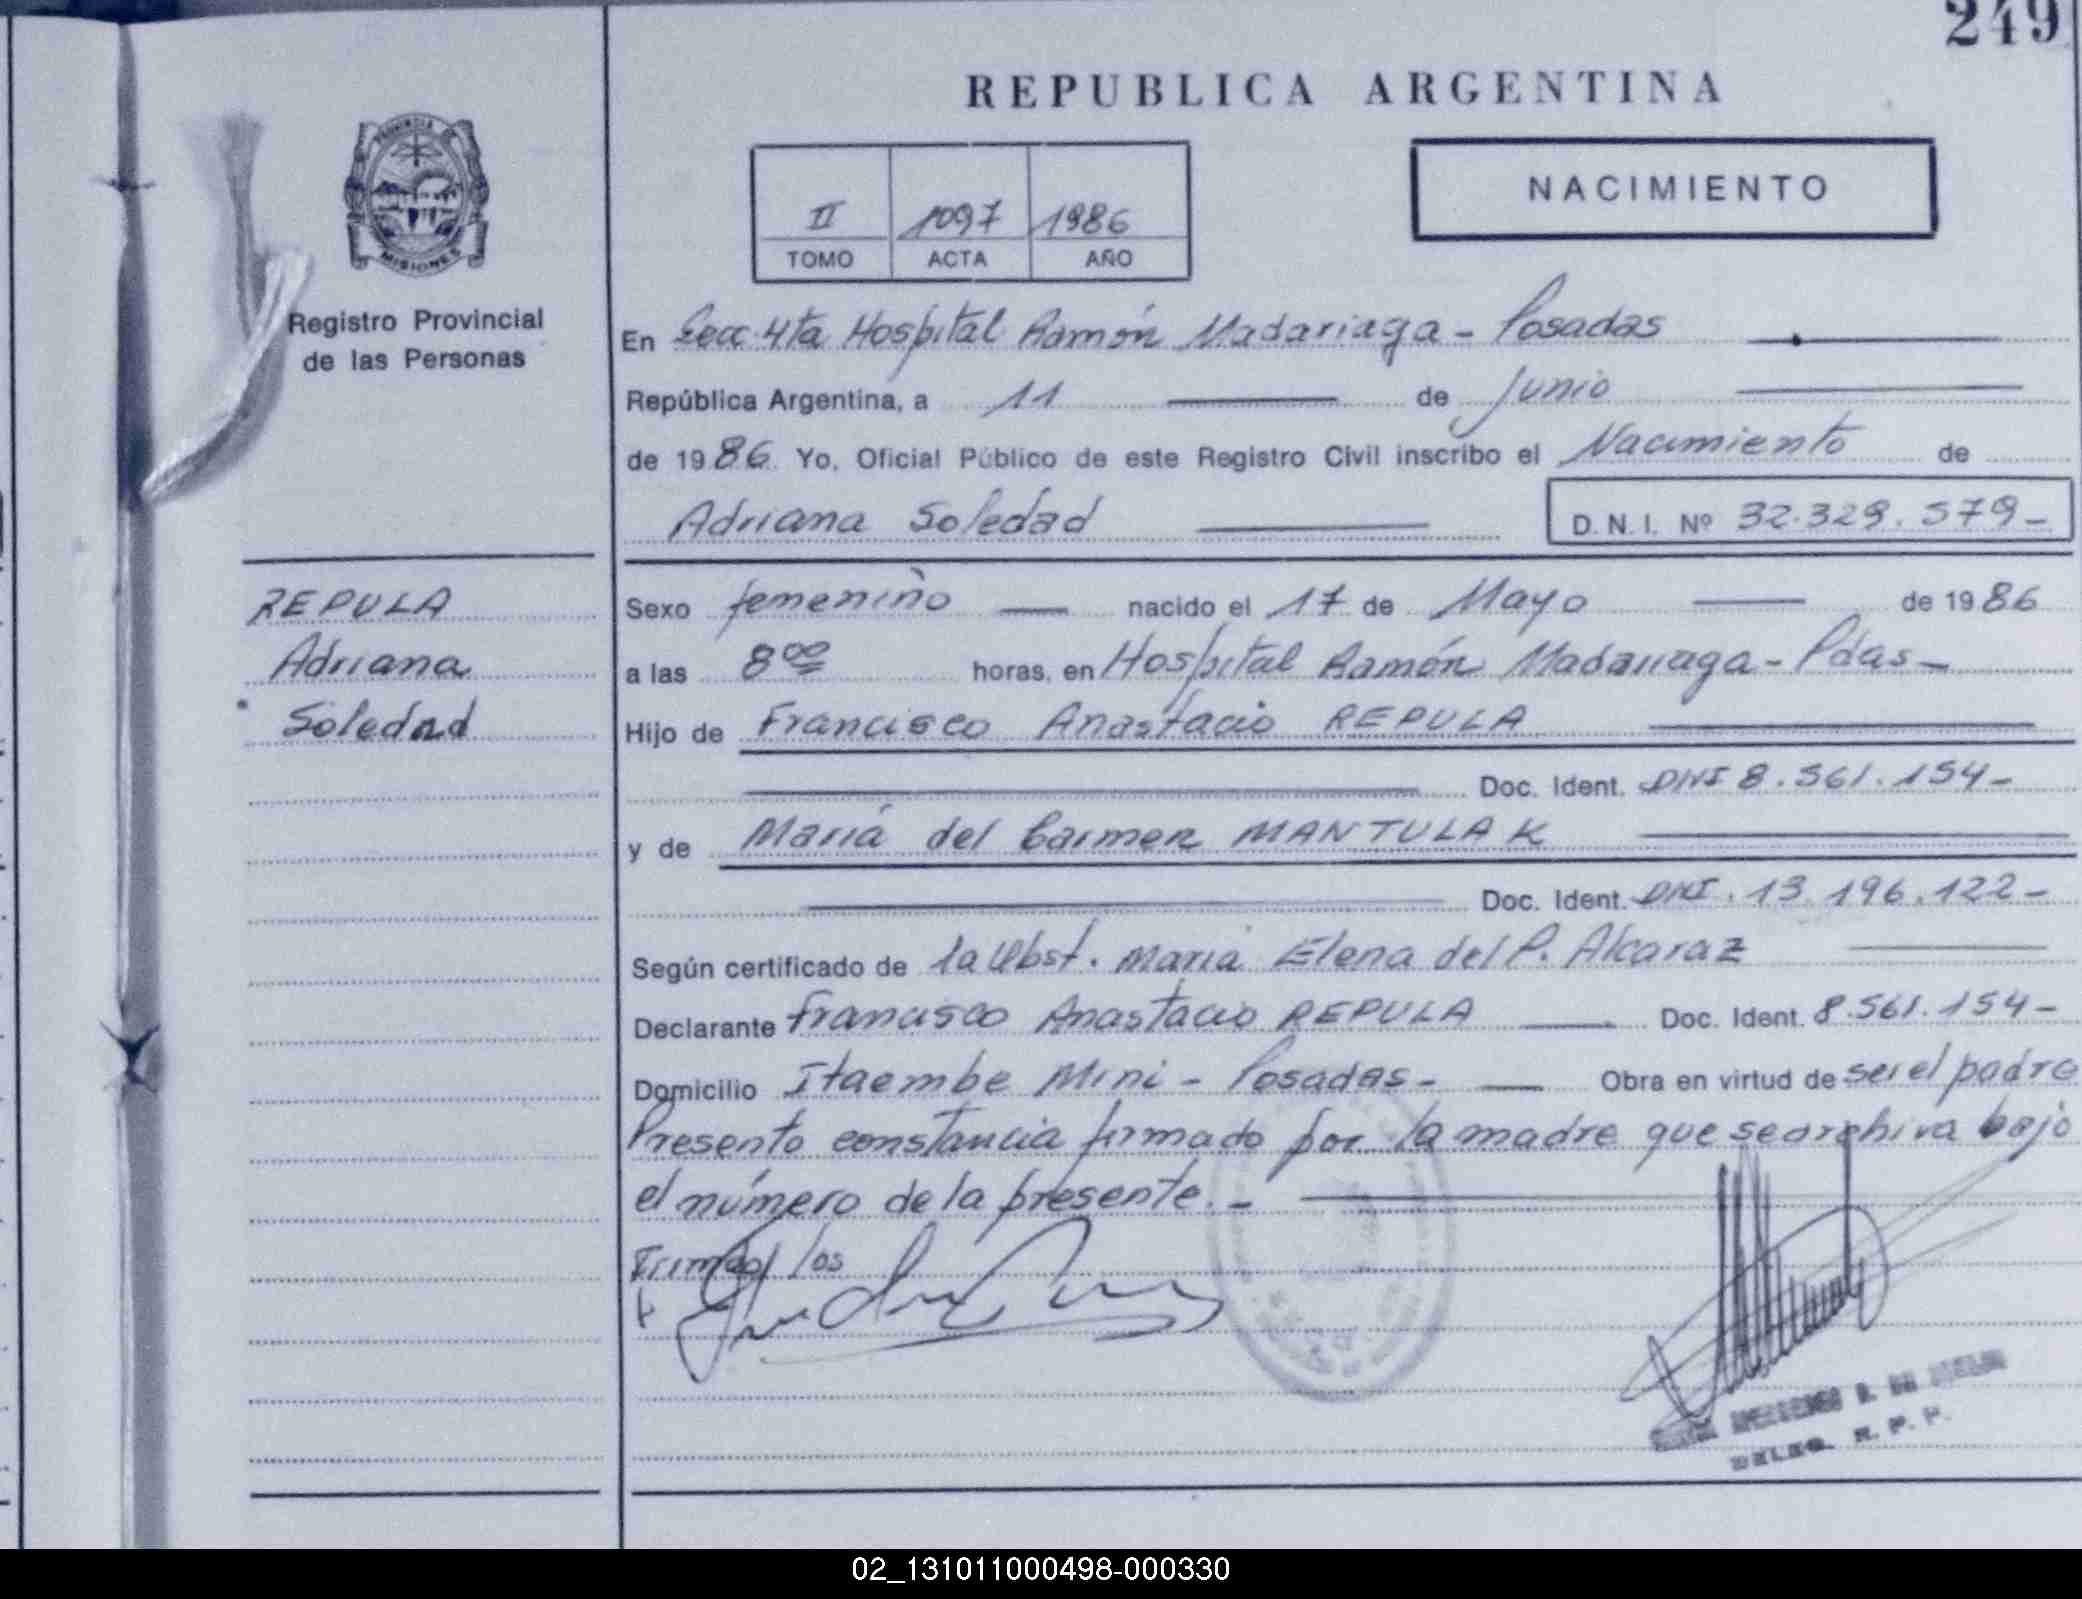 249
REPUBLICA ARGENTINA
PROVINCIA DE
MISIONES
Registro Provincial
de las Personas
II 1097 1986
TOMO ACTA AÑO
NACIMIENTO
En Secc 4ta Hospital Ramón Madariaga - Posadas
República Argentina, a 11 de Junio
de 1986. Yo, Oficial Público de este Registro Civil inscribo el Nacimiento de
Adriana Soledad
D. N. I. Nº 32.329.579-
REPULA
Adriana
Soledad
Sexo femenino nacido el 17 de Mayo de 1986
a las 8 00 horas, en Hospital Ramón Madariaga - Pdas -
Hijo de Francisco Anastacio REPULA
Doc. Ident. DNI 8.561.154-
y de Maria del Carmen MANTULAK
Doc. Ident. DNI. 13.196.122-
Según certificado de la Obst. Maria Elena del P. Alcaraz
Declarante Francisco Anastacio REPULA Doc. Ident. 8.561.154-
Domicilio Itaembe Mini - Posadas - Obra en virtud de ser el padre
Presento constancia firmado por la madre que se archiva bajo
el número de la presente. -
DELEG. R. P. P.
02_131011000498-000330